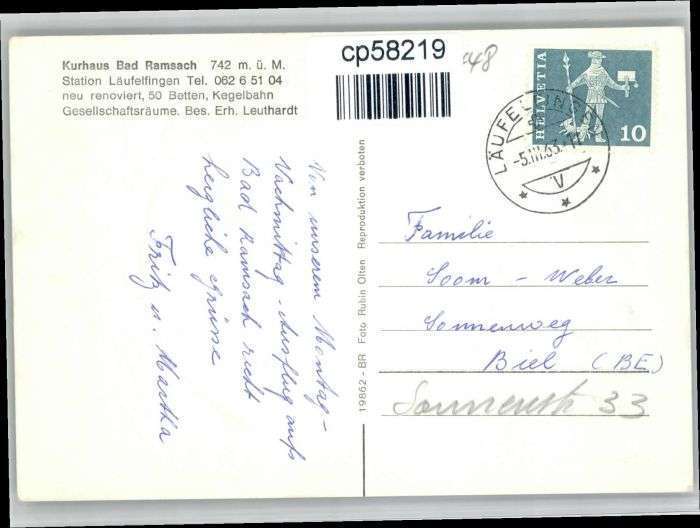 Kurhaus Bad Ramsach 742 m. ü. M.
Station Läufelfingen Tel. 062 6 51 04
neu renoviert, 50 Betten, Kegelbahn
Gesellschaftsräume. Bes. Erh. Leuthardt
cp58219
48
HELVETIA
10
LÄUFELFINGEN
-5.III.63.
V
Von unserem Montag-
Nachmittag-Ausflug aufs
Bad Ramsach recht
herzliche Grüsse
Fritz u. Martha
19862 - BR Foto Rubin Olten Reproduktion verboten
Familie
Soom - Weber
Sonnenweg
Biel (BE)
Sonnenstr 33